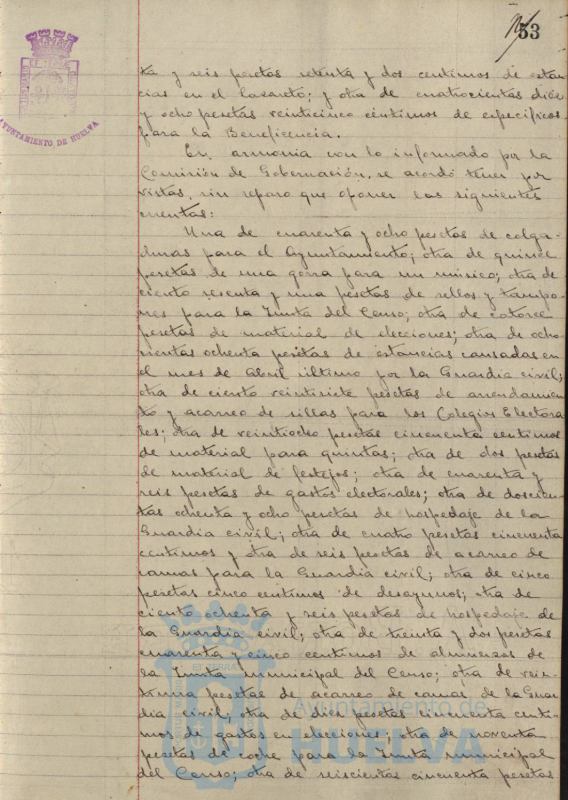 53
AYUNTAMIENTO DE HUELVA
ta y seis pesetas setenta y dos centimos de estan-
cias en el lazareto; y otra de cuatrocientas diez
y ocho pesetas veinticinco centimos de especificos
para la Beneficencia.
En armonia con lo informado por la
Comisión de Gobernación, se acordó tener por
vistas, sin reparo que oponer las siguientes
cuentas:
Una de cuarenta y ocho pesetas de colga-
duras para el Ayuntamiento; otra de quince
pesetas de una gorra para un músico; otra de
ciento sesenta y una pesetas de sellos y tampo-
nes para la Junta del Censo; otra de catorce
pesetas de material de elecciones; otra de ocho-
cientas ochenta pesetas de estancias causadas en
el mes de Abril último por la Guardia civil;
otra de ciento veintisiete pesetas de arrendamien-
to y acarreo de sillas para los Colegios Electora-
les; otra de veintiocho pesetas cincuenta centimos
de material para quintas; otra de dos pesetas
de material de festejos; otra de cuarenta y
seis pesetas de gastos electorales; otra de doscien-
tas ochenta y ocho pesetas de hospedaje de la
Guardia civil; otra de cuatro pesetas cincuenta
centimos y otra de seis pesetas de acarreo de
camas para la Guardia civil; otra de cinco
pesetas cinco centimos de desayunos; otra de
ciento ochenta y seis pesetas de hospedaje de
la Guardia civil; otra de treinta y dos pesetas
cuarenta y cinco centimos de almuerzos de
la Junta municipal del Censo; otra de vein-
tiuna pesetas de acarreo de camas de la Guar
dia civil; otra de diez pesetas cincuenta centi-
mos de gastos en elecciones; otra de noventa
pesetas de coche para la Junta municipal
del Censo; otra de seiscientas cincuenta pesetas
Ayuntamiento de
HUELVA